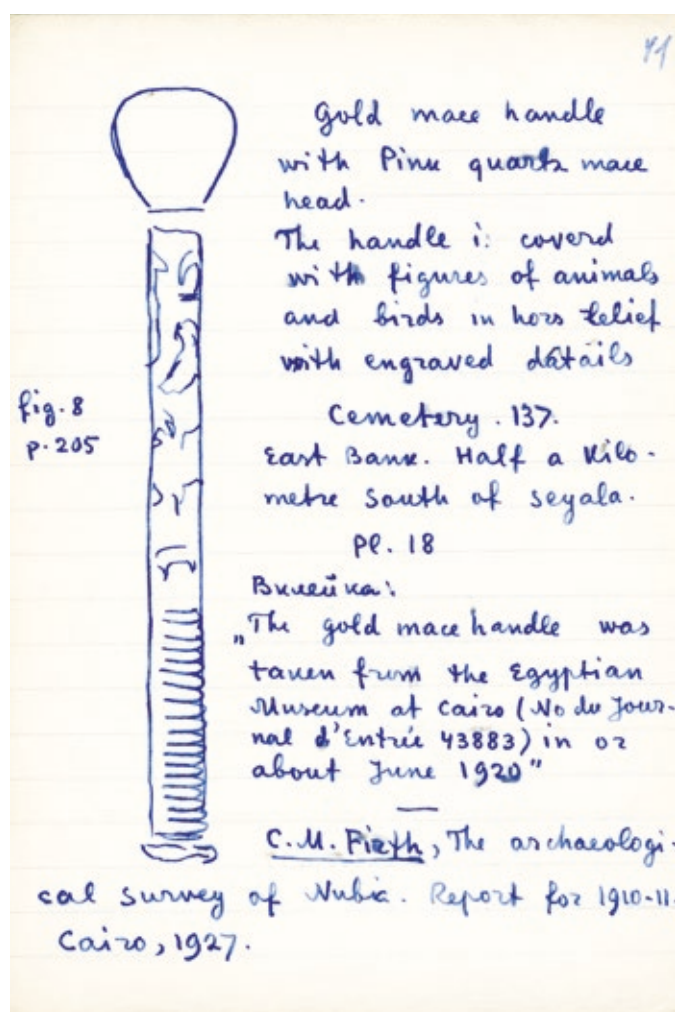 41
Gold mace handle
with Pink quartz mace
head.
The handle is coverd
with figures of animals
and birds in hors relief
with engraved détails
fig. 8
p. 205
Cemetery. 137.
East Bank. Half a Kilo-
metre South of seyala.
Pl. 18
Вклейка:
„The gold mace handle was
taken from the Egyptian
Museum at Cairo (No du Jour-
nal d'Entrée 43883) in or
about June 1920"
C.M. Firth, The archaeologi-
cal survey of Nubia. Report for 1910-11.
Cairo, 1927.